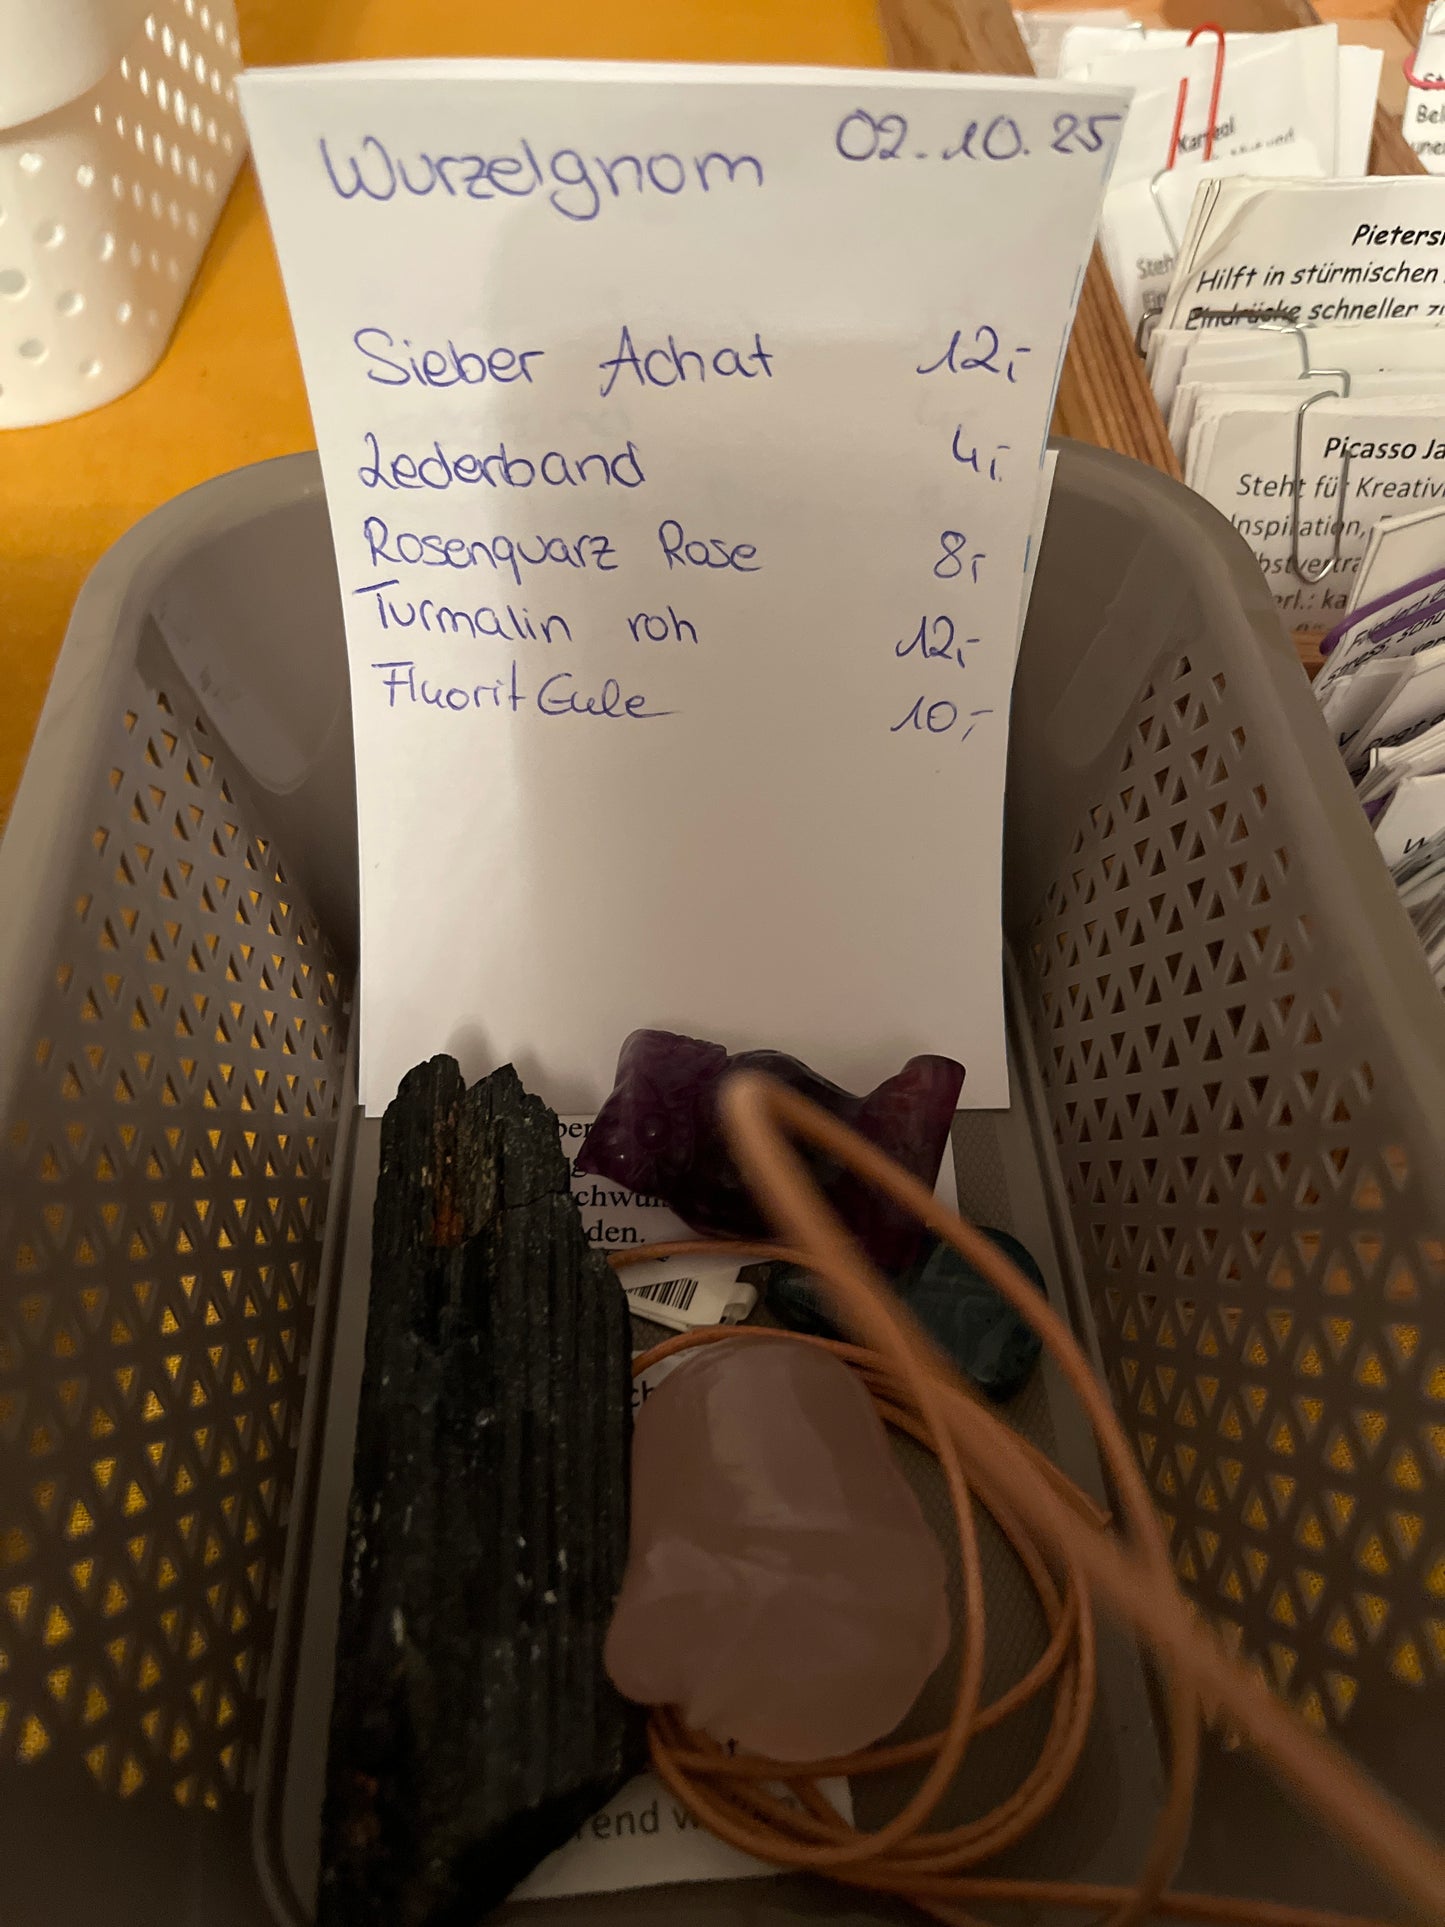 Wurzelgnom 02.10.25
Sieber Achat 12,-
Lederband 4,-
Rosenquarz Rose 8,-
Turmalin roh 12,-
Fluorit Eule 10,-
Steht
Pieters
Hilft in stürmischen
Eindrücke schneller zu
Picasso Ja
Steht für Kreativi
Inspiration,
bstvertra
erl.: ka
Bel
chwul
den.
rend w